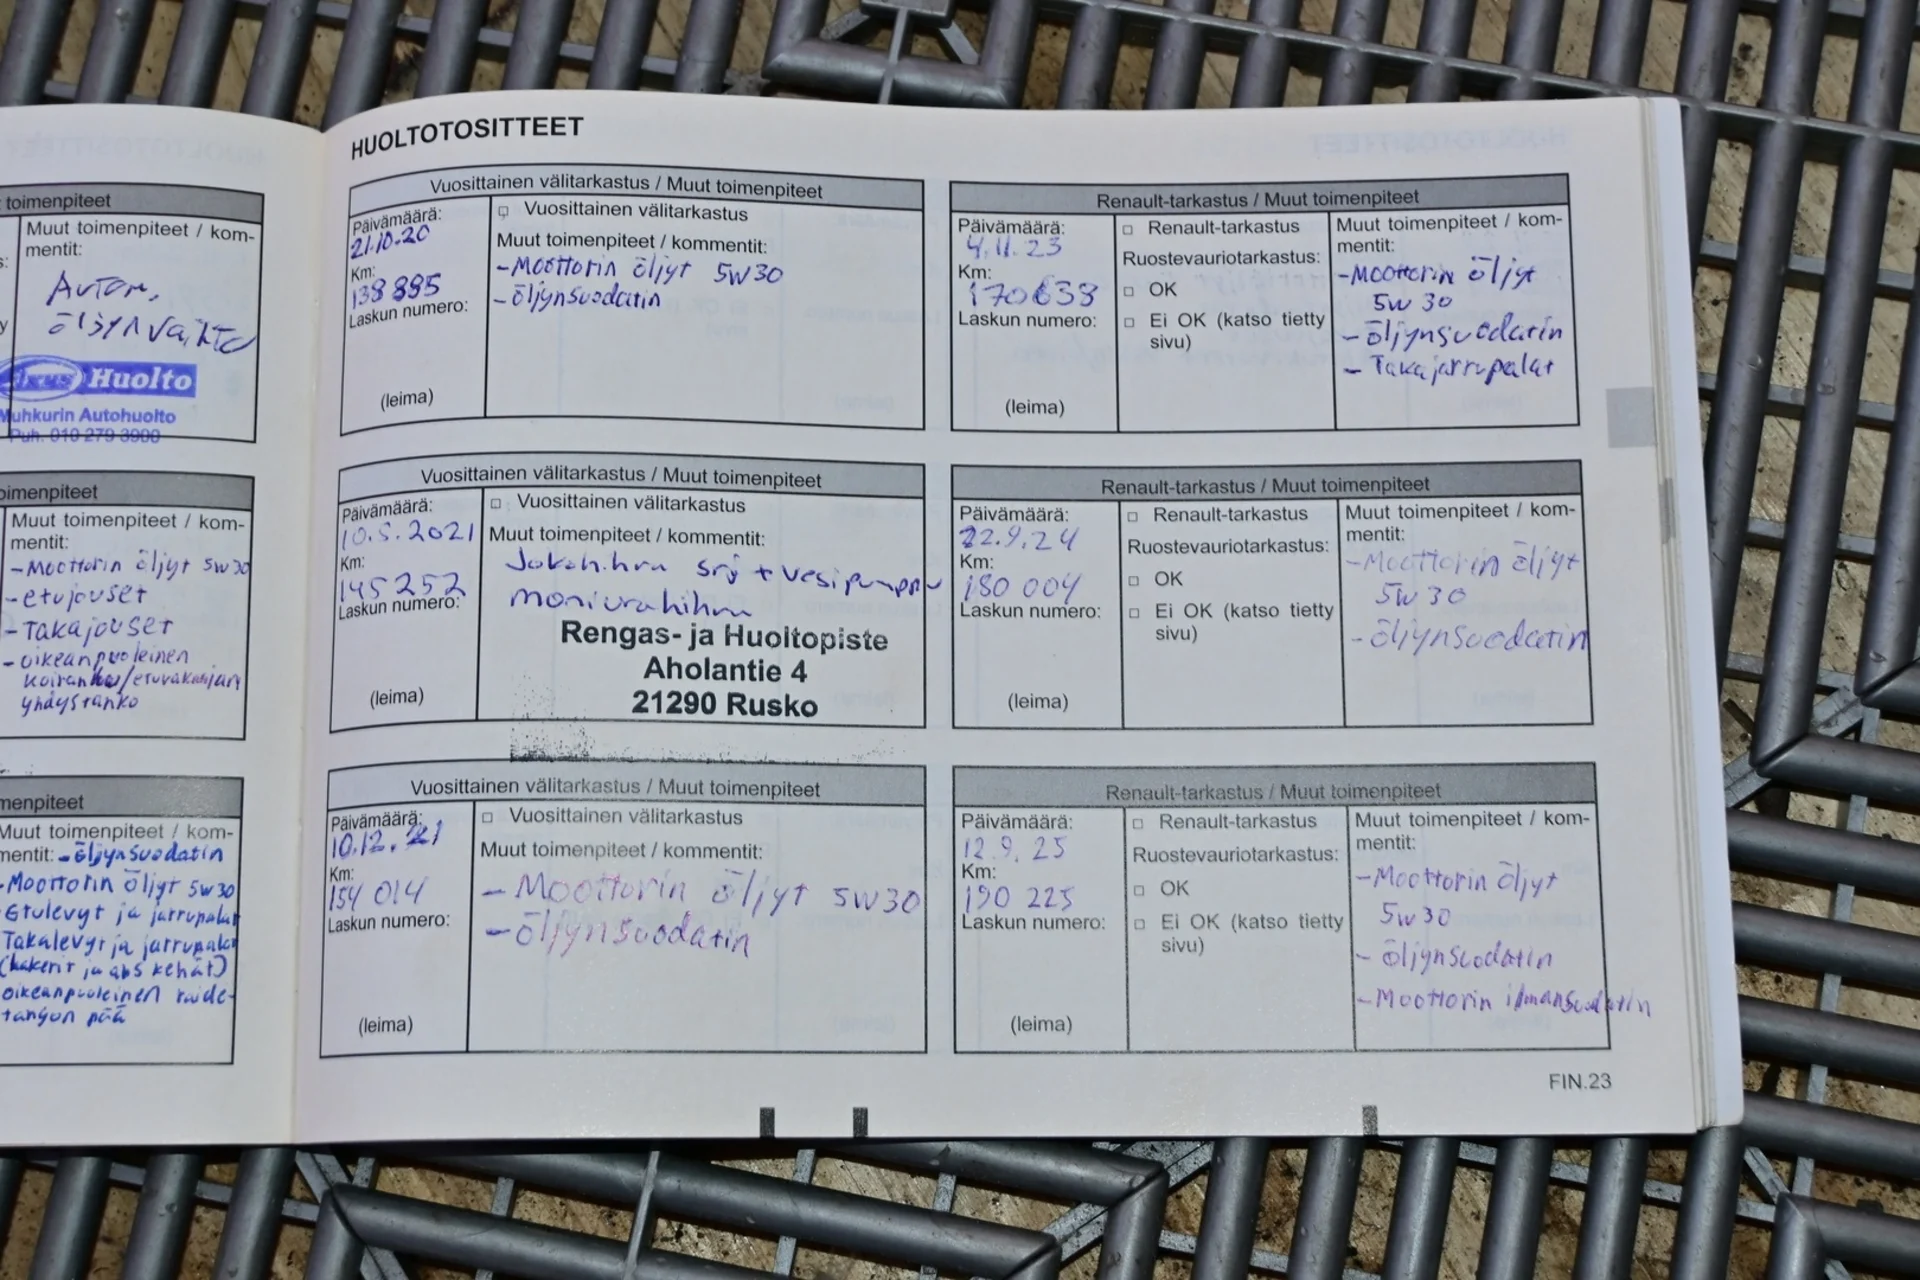 toimenpiteet
Muut toimenpiteet / kom-
mentit:
Autom.
öljynvaihto
Huolto
Muhkurin Autohuolto
Puh. 010 279 3900
oimenpiteet
Muut toimenpiteet / kom-
mentit:
-Moottorin öljyt 5w30
-etujouset
-Takajouset
-oikeanpuoleinen
yhdystanko
menpiteet
Muut toimenpiteet / kom-
mentit: -öljynsuodatin
-Moottorin öljyt 5w30
Etulevyt ja jarrupalat
Takalevyt ja jarrupalat
(hakerit ja abs kehät)
oikeanpuoleinen raide-
tangon pää
HUOLTOTOSITTEET
Vuosittainen välitarkastus / Muut toimenpiteet
Päivämäärä:
21.10.20
Km:
138885
Laskun numero:
(leima)
Vuosittainen välitarkastus
Muut toimenpiteet / kommentit:
-Moottorin öljyt 5w30
-öljynsuodatin
Vuosittainen välitarkastus / Muut toimenpiteet
Päivämäärä:
10.5.2021
Km:
145252
Laskun numero:
(leima)
Vuosittainen välitarkastus
Muut toimenpiteet / kommentit:
Jakohihna srj + vesipumppu
moniurahihna
Rengas- ja Huoltopiste
Aholantie 4
21290 Rusko
Vuosittainen välitarkastus / Muut toimenpiteet
Päivämäärä:
10.12.21
Km:
154 014
Laskun numero:
(leima)
Vuosittainen välitarkastus
Muut toimenpiteet / kommentit:
- Moottorin öljyt 5w30
-öljynsuodatin
Renault-tarkastus / Muut toimenpiteet
Päivämäärä:
4.11.23
Km:
170638
Laskun numero:
(leima)
Renault-tarkastus
Ruostevauriotarkastus:
OK
Ei OK (katso tietty
sivu)
Muut toimenpiteet / kom-
mentit:
-Moottorin öljyt
5w30
-öljynsuodatin
- Takajarrupalat
Renault-tarkastus / Muut toimenpiteet
Päivämäärä:
22.9.24
Km:
180 004
Laskun numero:
(leima)
Renault-tarkastus
Ruostevauriotarkastus:
OK
Ei OK (katso tietty
sivu)
Muut toimenpiteet / kom-
mentit:
-Moottorin öljyt
5w30
-öljynsuodatin
Renault-tarkastus / Muut toimenpiteet
Päivämäärä:
12.9.25
Km:
190 225
Laskun numero:
(leima)
Renault-tarkastus
Ruostevauriotarkastus:
OK
Ei OK (katso tietty
sivu)
Muut toimenpiteet / kom-
mentit:
-Moottorin öljyt
5w30
- öljynsuodatin
-Moottorin ilmansuodatin
FIN.23